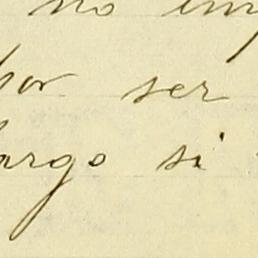 no imp
por ser
argo si